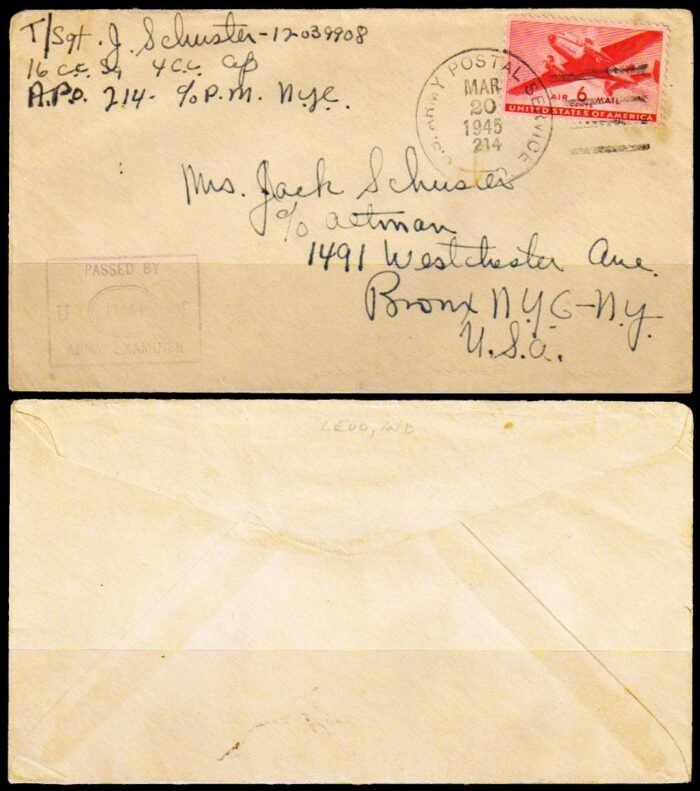 T/Sgt. J. Schuster-12039908
16 C.C. Sq 4 C.C. Gp
A.P.O. 214- c/o P.M. N.Y.C.
U.S. ARMY POSTAL SERVICE
MAR
20
1945
214
AIR 6 MAIL
CENTS
UNITED STATES OF AMERICA
Mrs. Jack Schuster
c/o Altman
1491 Westchester Ave.
Bronx N.Y.C-N.Y.
U.S.A.
PASSED BY
U S
ARMY EXAMINER
LEDO, IND